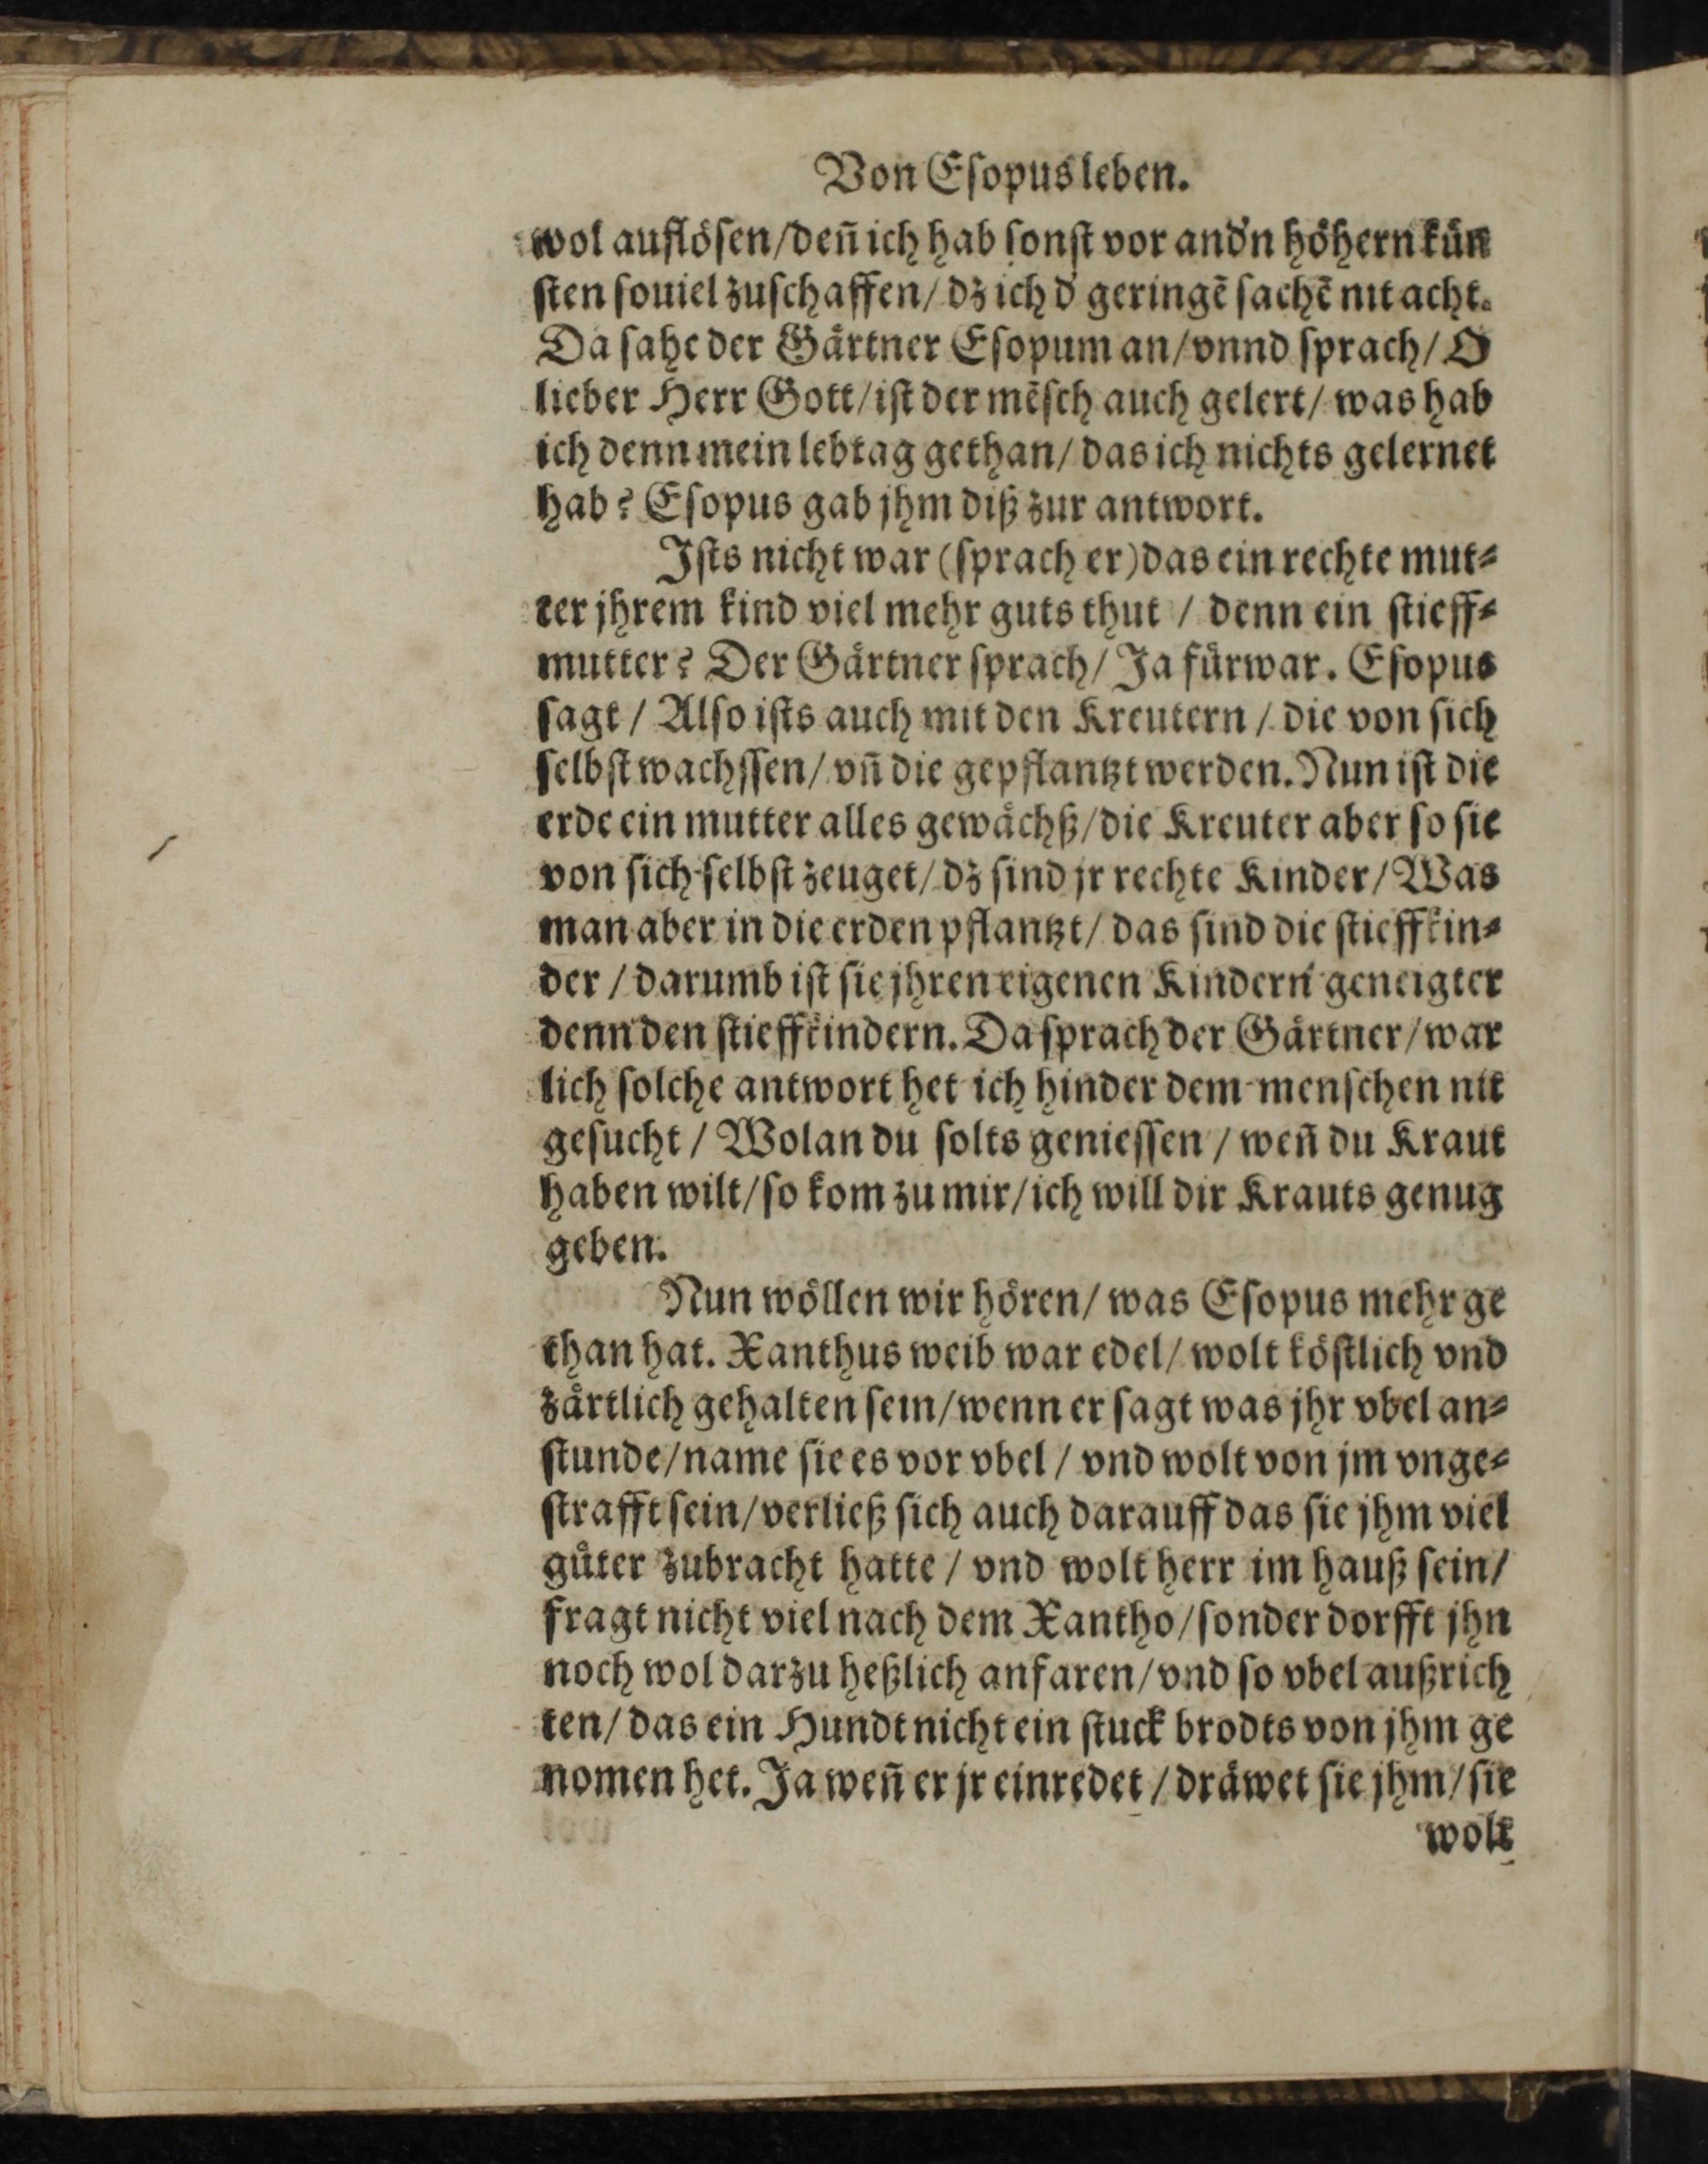 Von Esopus leben.
wol auflösen/deñ ich hab sonst vor and'n höhern kün
sten souiel zuschaffen/ dz ich d' geringẽ sachẽ nit acht.
Da sahe der Gärtner Esopum an/vnnd sprach/ O
lieber Herr Gott/ist der mẽsch auch gelert/ was hab
ich denn mein lebtag gethan/ das ich nichts gelernet
hab? Esopus gab jhm diß zur antwort.
Ists nicht war (sprach er) das ein rechte mut-
ter jhrem kind viel mehr guts thut / denn ein stieff-
mutter? Der Gärtner sprach/ Ja fürwar. Esopus
sagt / Also ists auch mit den Kreutern / die von sich
selbst wachssen/ vñ die gepflantzt werden. Nun ist die
erde ein mutter alles gewächß/die Kreuter aber so sie
von sich selbst zeuget/ dz sind jr rechte Kinder/ Was
man aber in die erden pflantzt/ das sind die stieffkin-
der / darumb ist sie jhren eigenen Kindern geneigter
denn den stieffkindern. Da sprach der Gärtner/ war
lich solche antwort het ich hinder dem menschen nit
gesucht / Wolan du solts geniessen / weñ du Kraut
haben wilt/so kom zu mir/ich will dir Krauts genug
geben.
Nun wöllen wir hören/ was Esopus mehr ge
than hat. Xanthus weib war edel/ wolt köstlich vnd
zärtlich gehalten sein/wenn er sagt was jhr vbel an-
stunde/name sie es vor vbel / vnd wolt von jm vnge-
strafft sein/verließ sich auch darauff das sie jhm viel
güter zubracht hatte / vnd wolt herr im hauß sein/
fragt nicht viel nach dem Xantho/sonder dorfft jhn
noch wol darzu heßlich anfaren/vnd so vbel außrich
ten/ das ein Hundt nicht ein stuck brodts von jhm ge
nomen het. Ja weñ er jr einredet / dräwet sie jhm/ sie
wolt